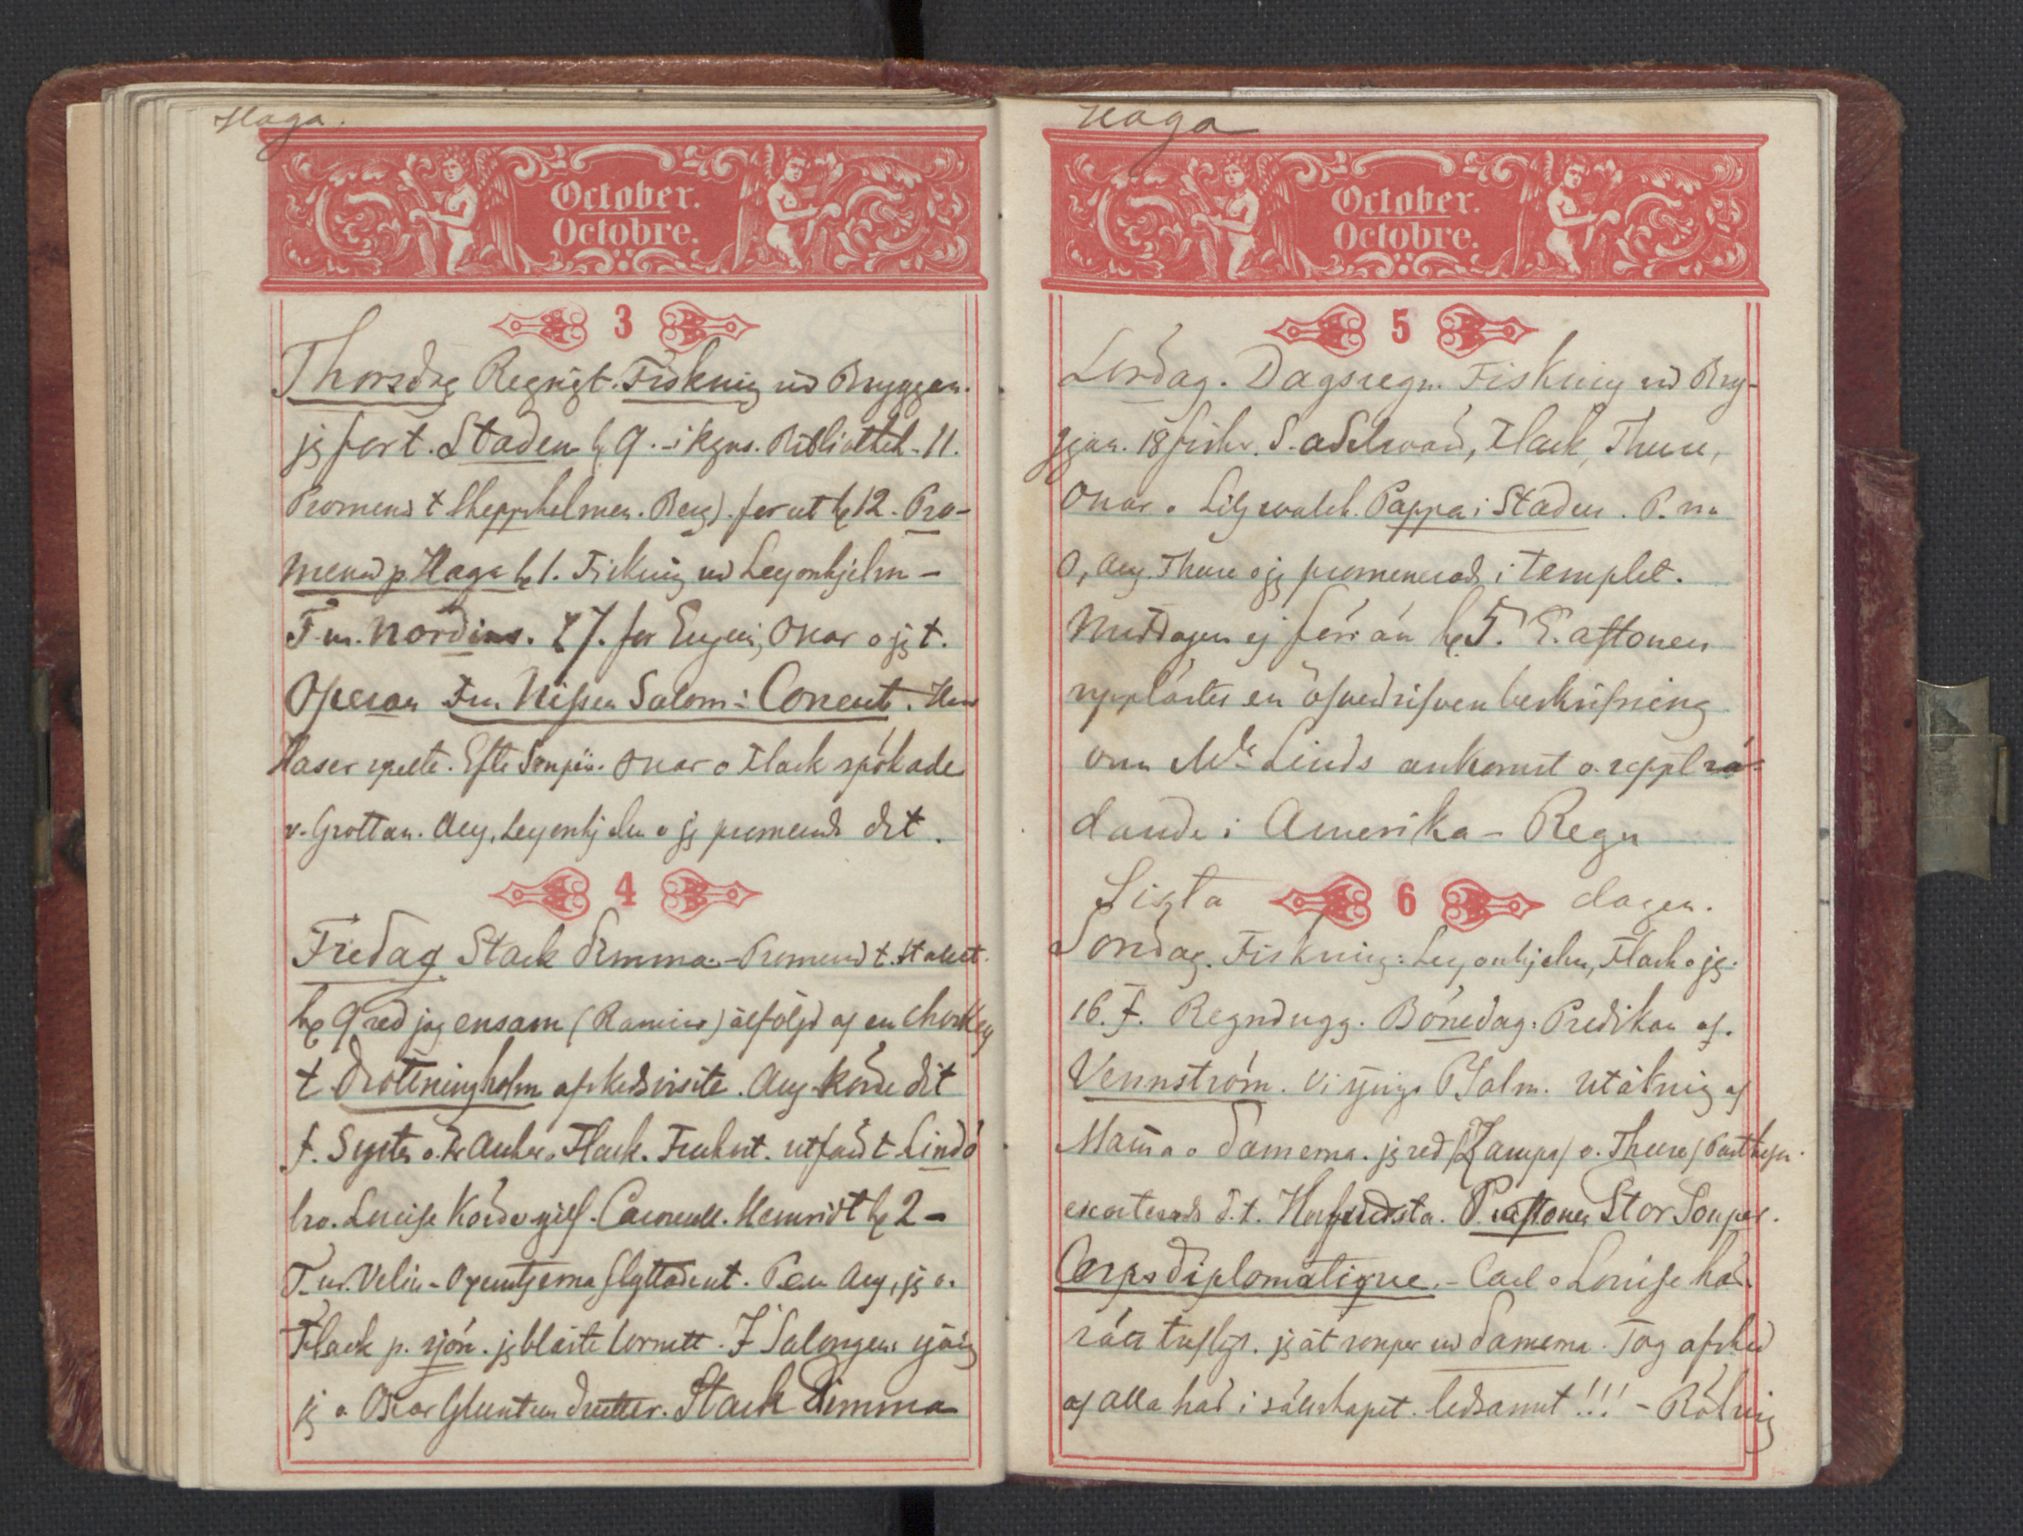 Haga.
October.
Octobre.
3
Thorsdag Regnigt. Fiskning vid Bryggan.
jg for t. Staden kl 9. - i Kgns. Bibliothek - 11.
Promend t Skeppsholmen. Berg). for ut kl 12. Pro-
menad p. Haga kl 1. Fiskning vid Leyonhjelm -
F m. Nordins. t 7. for Eugen, Oscar o jg t.
Operan Fru Nissen Salom: Concert. Herr
Haser spelte. Efter Soupén. Oscar o Flack spökade
v. Grottan. Aug, Leyonhjelm o jg promend dit.
4
Fredag Stark dimma - Promend t. Stallet.
kl 9 red jag ensam (Ramiro) åtföljd af en
t Drottningholm afskedsvisite. Aug körde dit
f. Syster o. Flack. Frukost. utfärd t Lindö
bro. Louise Körde sjelf. Hemridt kl 2 -
F m. Oxenstjerna flyttade ut. P em Aug, jg o.
Flack p. sjön. jg blåste Cornett. I Salongen sjöng
jg o Oscar Glunten duetter. Stark Dimma
Haga
October.
Octobre.
5
Lördag. Dagsregn. Fiskning vid Bry-
ggan. 18 fiskr. S. Adelsvärd, Flack, Thure,
Oscar o Liljewalch. Pappa i Staden. P. m.
O, Aug. Thure o jg promenerade i templet.
Middagen ej förr än kl 5. E. aftonen
upplästes en öfverdrifven beskrifning
om Mlle Linds ankomst o. uppträ-
dande i Amerika - Regn
Sista 6 dagen.
Söndag. Fiskning: Leyonhjelm, Flack o jg.
16. f. Regndugg. Bönedag: Predikan af.
Vennström. Vi sjöngo Psalm. Utåkning af
Mamma o damerna. jg red (Zampa) o. Thure
escorterade d. t. Hufvudsta. P. aftonen Stor Souper.
Corps diplomatique. - Carl o Louise här.
rätt trefligt. jg åt souper vid damerna. Tog afsked
af alla här i sällskapet. ledsamt!!! - Rökning